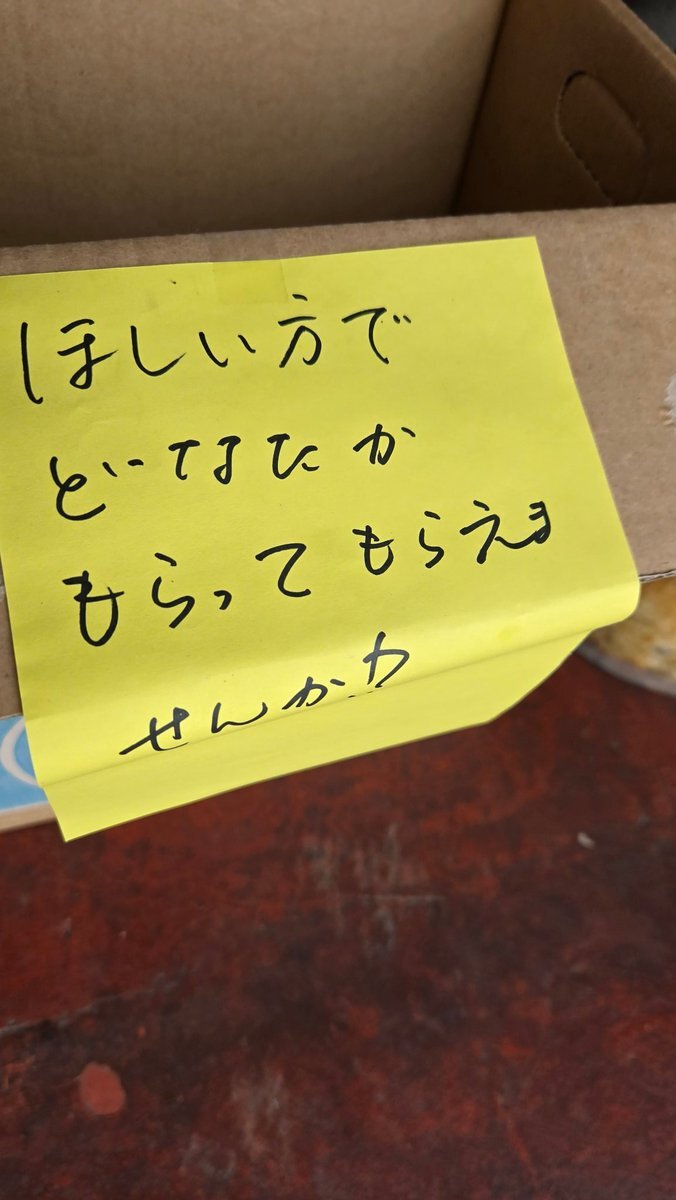 ほしい方で
どなたか
もらってもらえま
せんか?